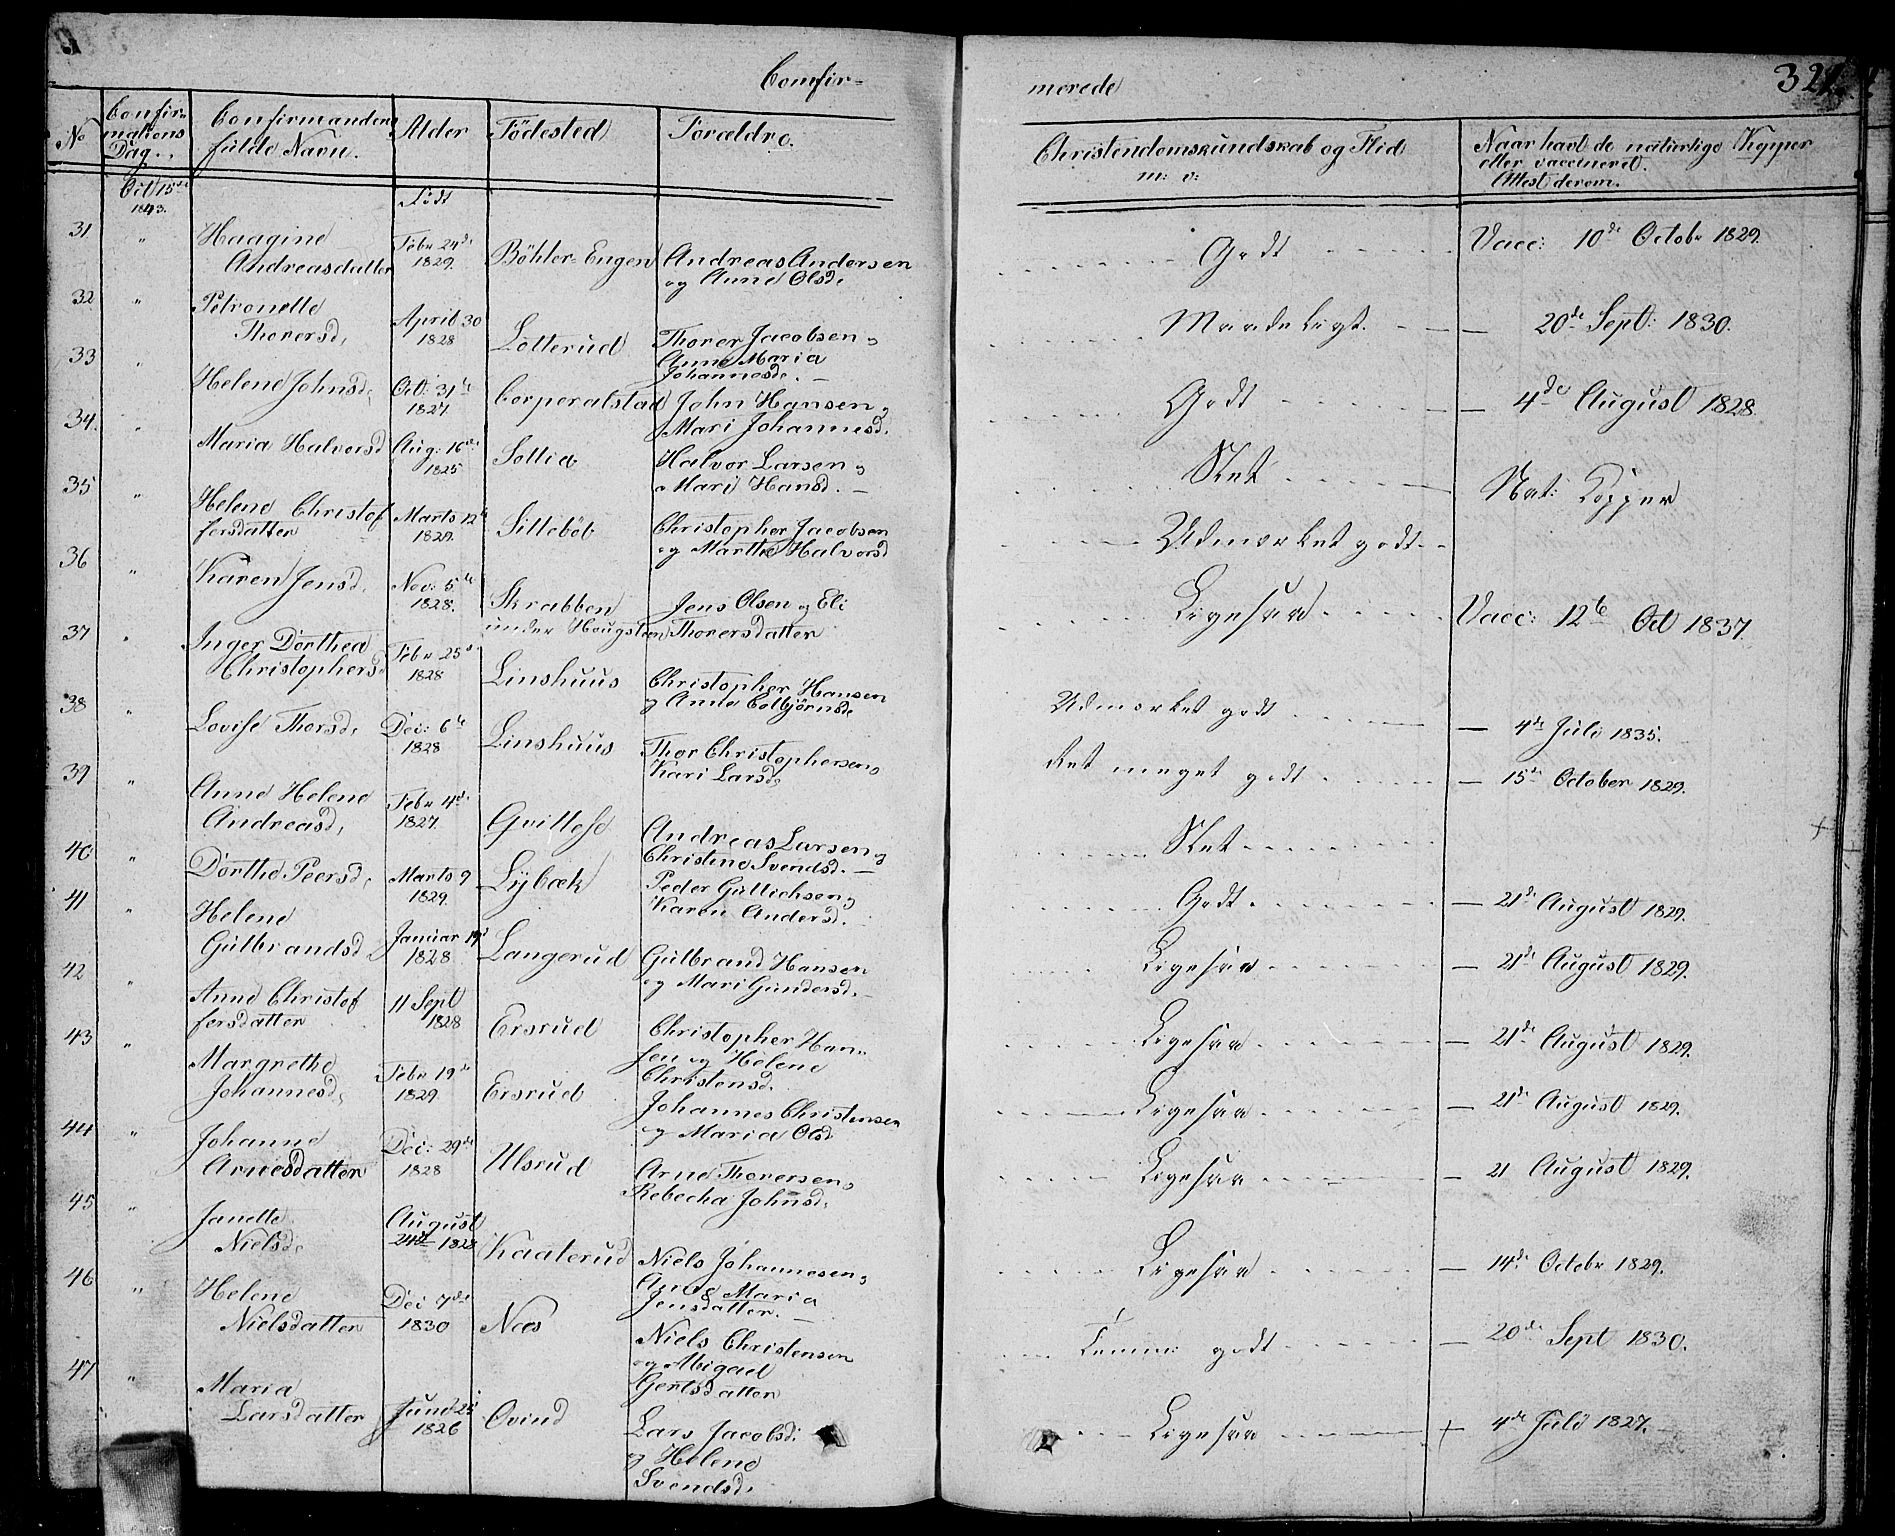 Comfir-
merede
No
Confir-
mations
Dag.
Confirmandens
fulde Navn.
Alder
Födested
Forældre.
Christendomskundskab og Flid
m: v:
Naar havt de naturlige Kopper
eller vaccineret.
Attest derom.
Oct 15de
1843.
Födt
31 " Haagine
Andreasdatter
Febr 24de
1829.
Böhler-Engen
Andreas Andersen
og Anne Olsd.
Godt
Vacc: 10de Octobr 1829.
32 " Petronelle
Thorersd,
April 30
1828
Lotterud
Thorer Jacobsen og
Anne Maria
Johannesd.
Maadeligt.
— 20de Sept: 1830.
33 " Helene Johnsd,
Oct: 31te
1827.
Corporalstad
John Hansen og
Mari Johannesd.
Godt
— 4de August 1828.
34. " Maria Halvorsd
Aug: 16de
1825
Sollia
Halvor Larsen og
Mari Hansd.
Slet
Nat: Kopper
35 " Helene Christof
fersdatter
Marts 12te
Sillebøb
Christopher Jacobsen
og Marthe Halvorsd
Udmærket godt
36 " Karen Jensd,
Nov: 5te
1828.
Skrabben
under Hougsteen
Jens Olsen og Eli
Thorersdatter
Ligesaa
Vacc: 12te Oct 1837
37 " Inger Dorthea
Christophersd
Febr 25de
1828
Linshuus
Christopher Hansen
og Anne Colbjörnsd.
Udmærket godt
— 4de Juli 1835.
38 " Lovise Thorsd,
Dec: 6te
1828
Linshuus
Thor Christophersen og
Kari Larsd.
Ret meget godt
— 15de October 1829.
39 " Anne Helene
Andreasd,
Febr 4de
1827.
Gvillese
Andreas Larsen og
Christine Svendsd.
Slet
40 " Dorthe Peersd,
Marts 9
1829.
Lybæk
Peder Gullichsen og
Karen Andersd.
Godt
— 21de August 1829.
41 " Helene
Gulbrandsd,
Januar 19de
1828
Langerud
Gulbrand Hansen
og Mari Gundersd.
Ligesaa
— 21de August 1829.
42 " Anne Christof
fersdatter
11 Sept
1828
Ersrud
Christopher Han-
sen og Helene
Christensd.
Ligesaa
— 21de August 1829.
43 " Margrethe
Johannesd,
Febr 19de
1829
Ersrud
Johannes Christensen
og Maria Olsd
Ligesaa
— 21de August 1829.
44 " Johanne
Arnesdatter
Dec: 29de
1828
Ulsrud
Arne Thorersen og
Rebecka Johnsd.
Ligesaa
— 21 August 1829.
45 " Janette
Nielsd,
August
24de 1828
Kaaterud
Niels Johannesen og
Anne Maria
Jensdatter.
Ligesaa
— 14de Octobr 1829.
46 " Helene
Nielsdatter
Dec 7de
1830
Næs
Niels Christensen
og Abigael
Gertsdatter
Temmel godt
— 20de Sept 1830.
47 " Maria
Larsdatter
Juni 25
1826
Ovind
Lars Jacobsd:
og Helene
Svendsd.
Ligesaa
4de Juli 1827.